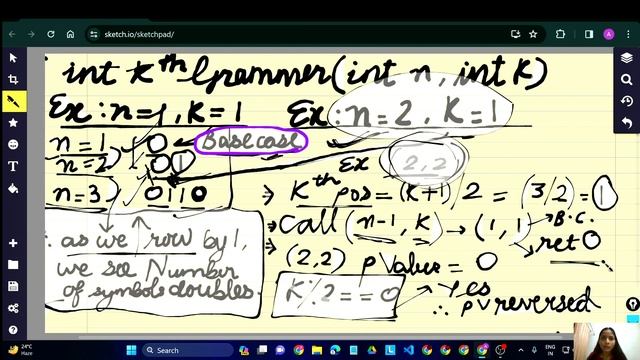 sketch.io/sketchpad/
int Kth Grammer(int n, int K)
Ex: n=1, K=1 Ex: n=2, K=1
n=1 0 Base case
n=2 01 Ex (2,2)
n=3 0110 ⇒ Kth pos = (K+1)/2 = (3/2) = 1
⇒ Call (n-1, K) → (1,1) → B.C.
→ ret 0
∴ as we ↑ row by 1,
we see Number
of symbols doubles
⇒ (2,2) p Value = 0
K%2==0 → Yes
∴ PV reversed
24°C
Haze
Search
ENG
IN